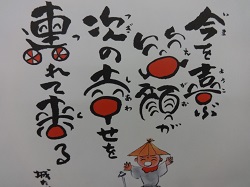 今を喜ぶ
笑顔が
次の幸せを
連れて来る